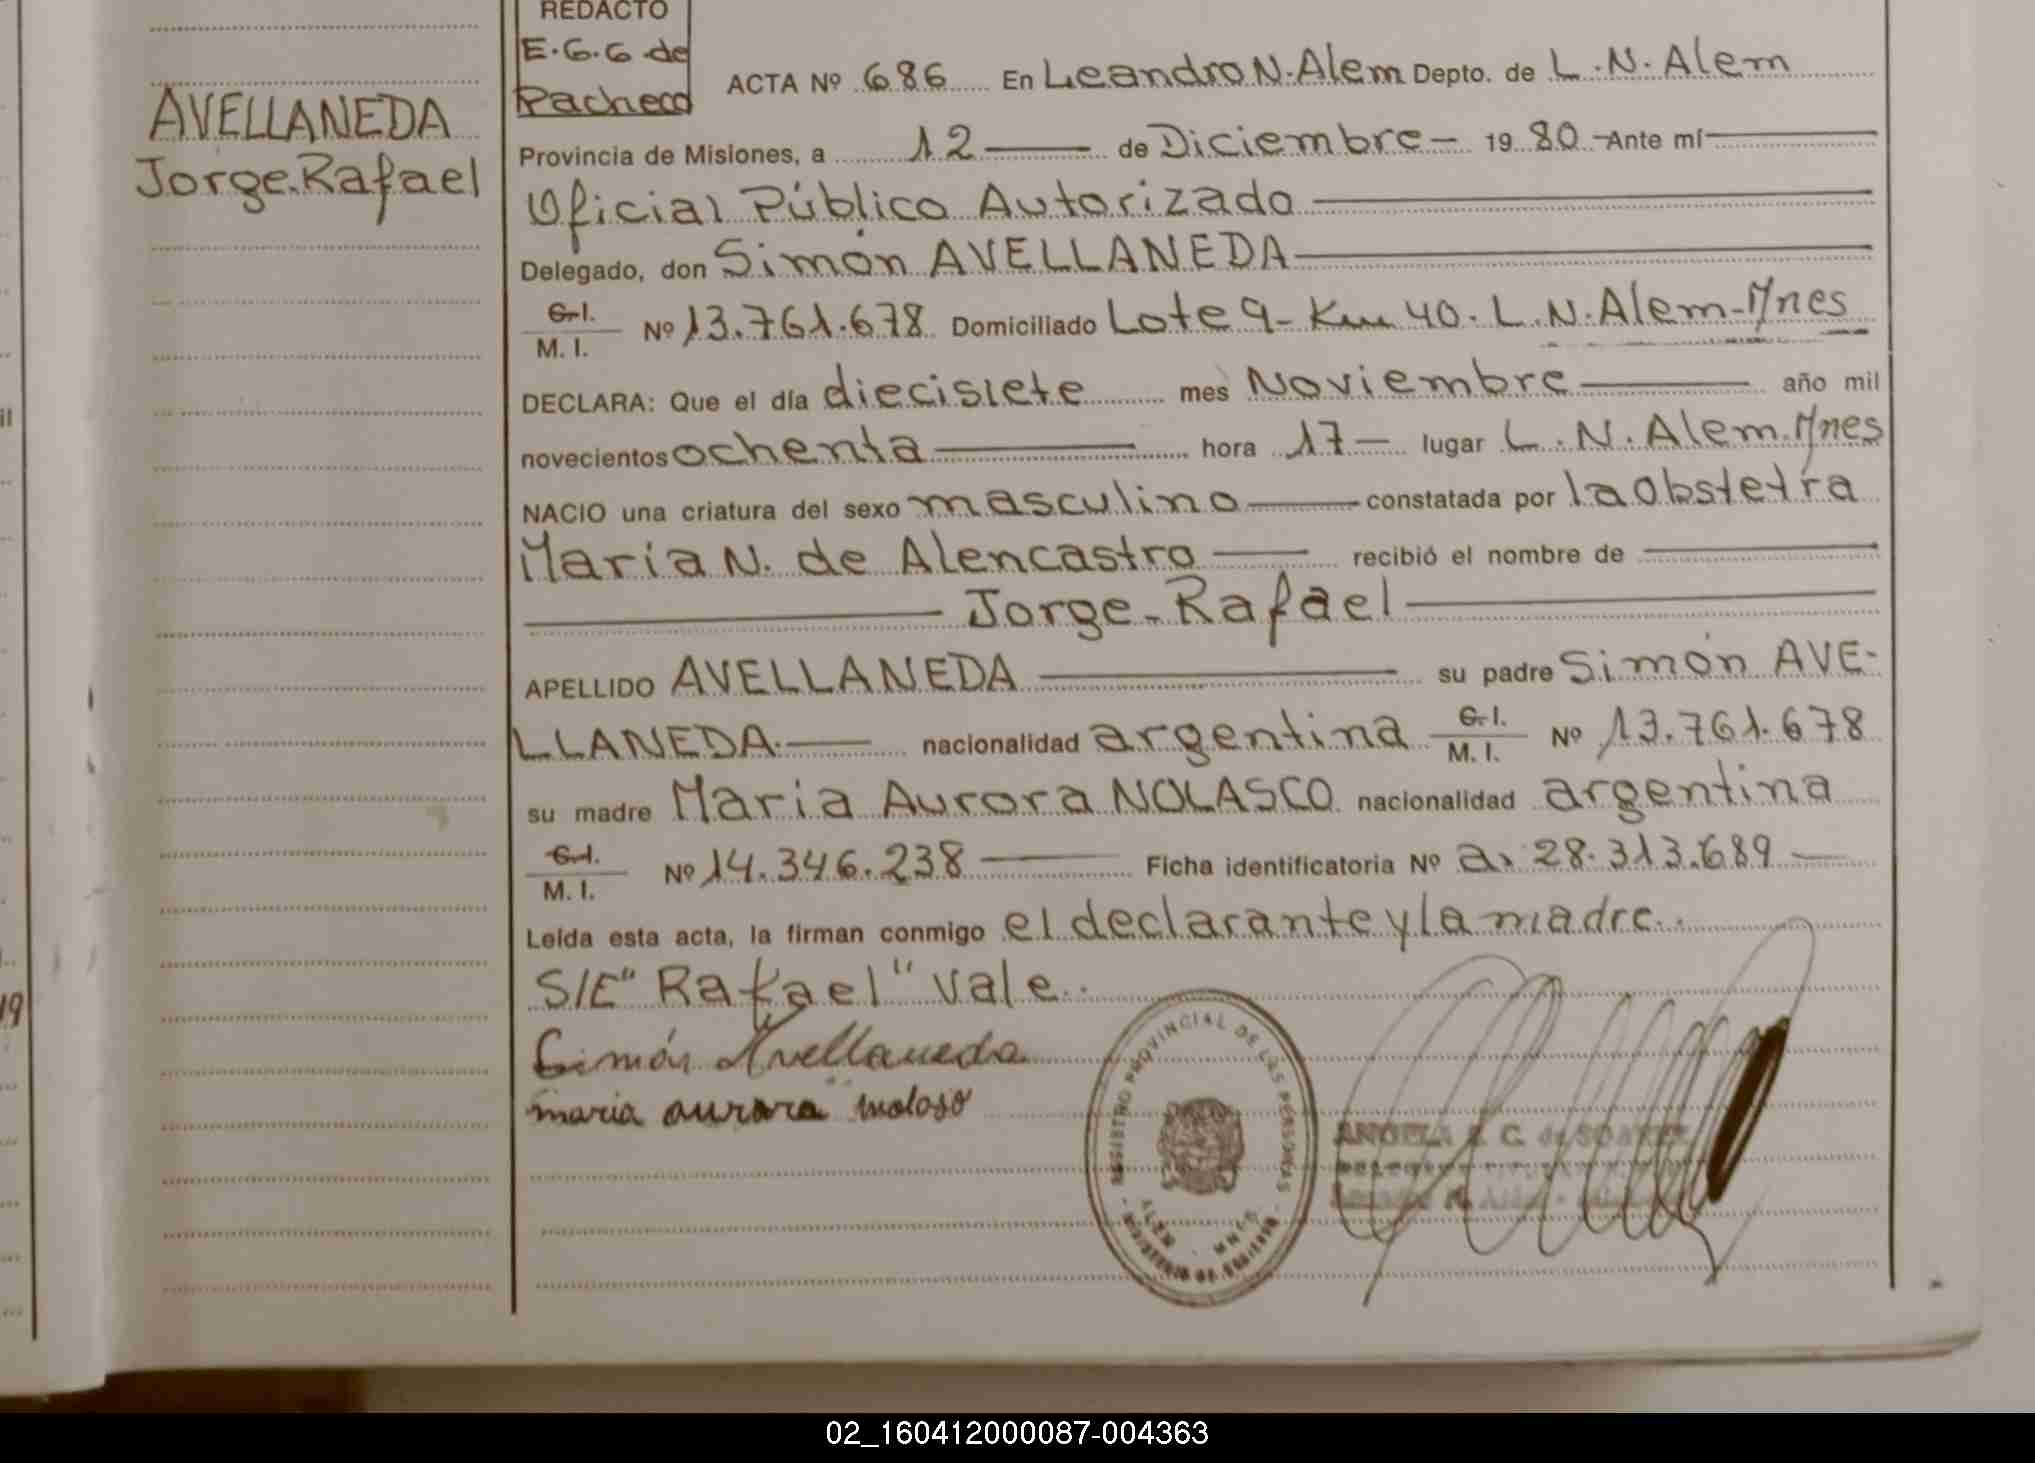 REDACTO
E.G.G de
Pacheco
AVELLANEDA
Jorge Rafael
ACTA Nº 686 En Leandro N. Alem Depto. de L. N. Alem
Provincia de Misiones, a 12 — de Diciembre - 19 80 - Ante mí
Oficial Público Autorizado
Delegado, don Simón AVELLANEDA
C. I.
M. I. Nº 13.761.678 Domiciliado Lote 9 - Km 40. L. N. Alem - Mnes
DECLARA: Que el día diecisiete mes Noviembre año mil
novecientos ochenta hora 17 — lugar L. N. Alem. Mnes
NACIO una criatura del sexo masculino constatada por la obstetra
Maria N. de Alencastro recibió el nombre de
Jorge - Rafael
APELLIDO AVELLANEDA su padre Simón AVE-
LLANEDA. nacionalidad argentina C. I. M. I. Nº 13.761.678
su madre Maria Aurora NOLASCO nacionalidad argentina
C. I.
M. I. Nº 14.346.238 Ficha identificatoria Nº a. 28.313.689
Leída esta acta, la firman conmigo el declarante y la madre.
S/E "Rafael" vale.
Simón Avellaneda
maria aurora noloso
REGISTRO PROVINCIAL DE LAS PERSONAS
ALEM - MNES
MINISTERIO DE GOBIERNO
ANGELA E. C. de SOAREZ
il
19
02_160412000087-004363